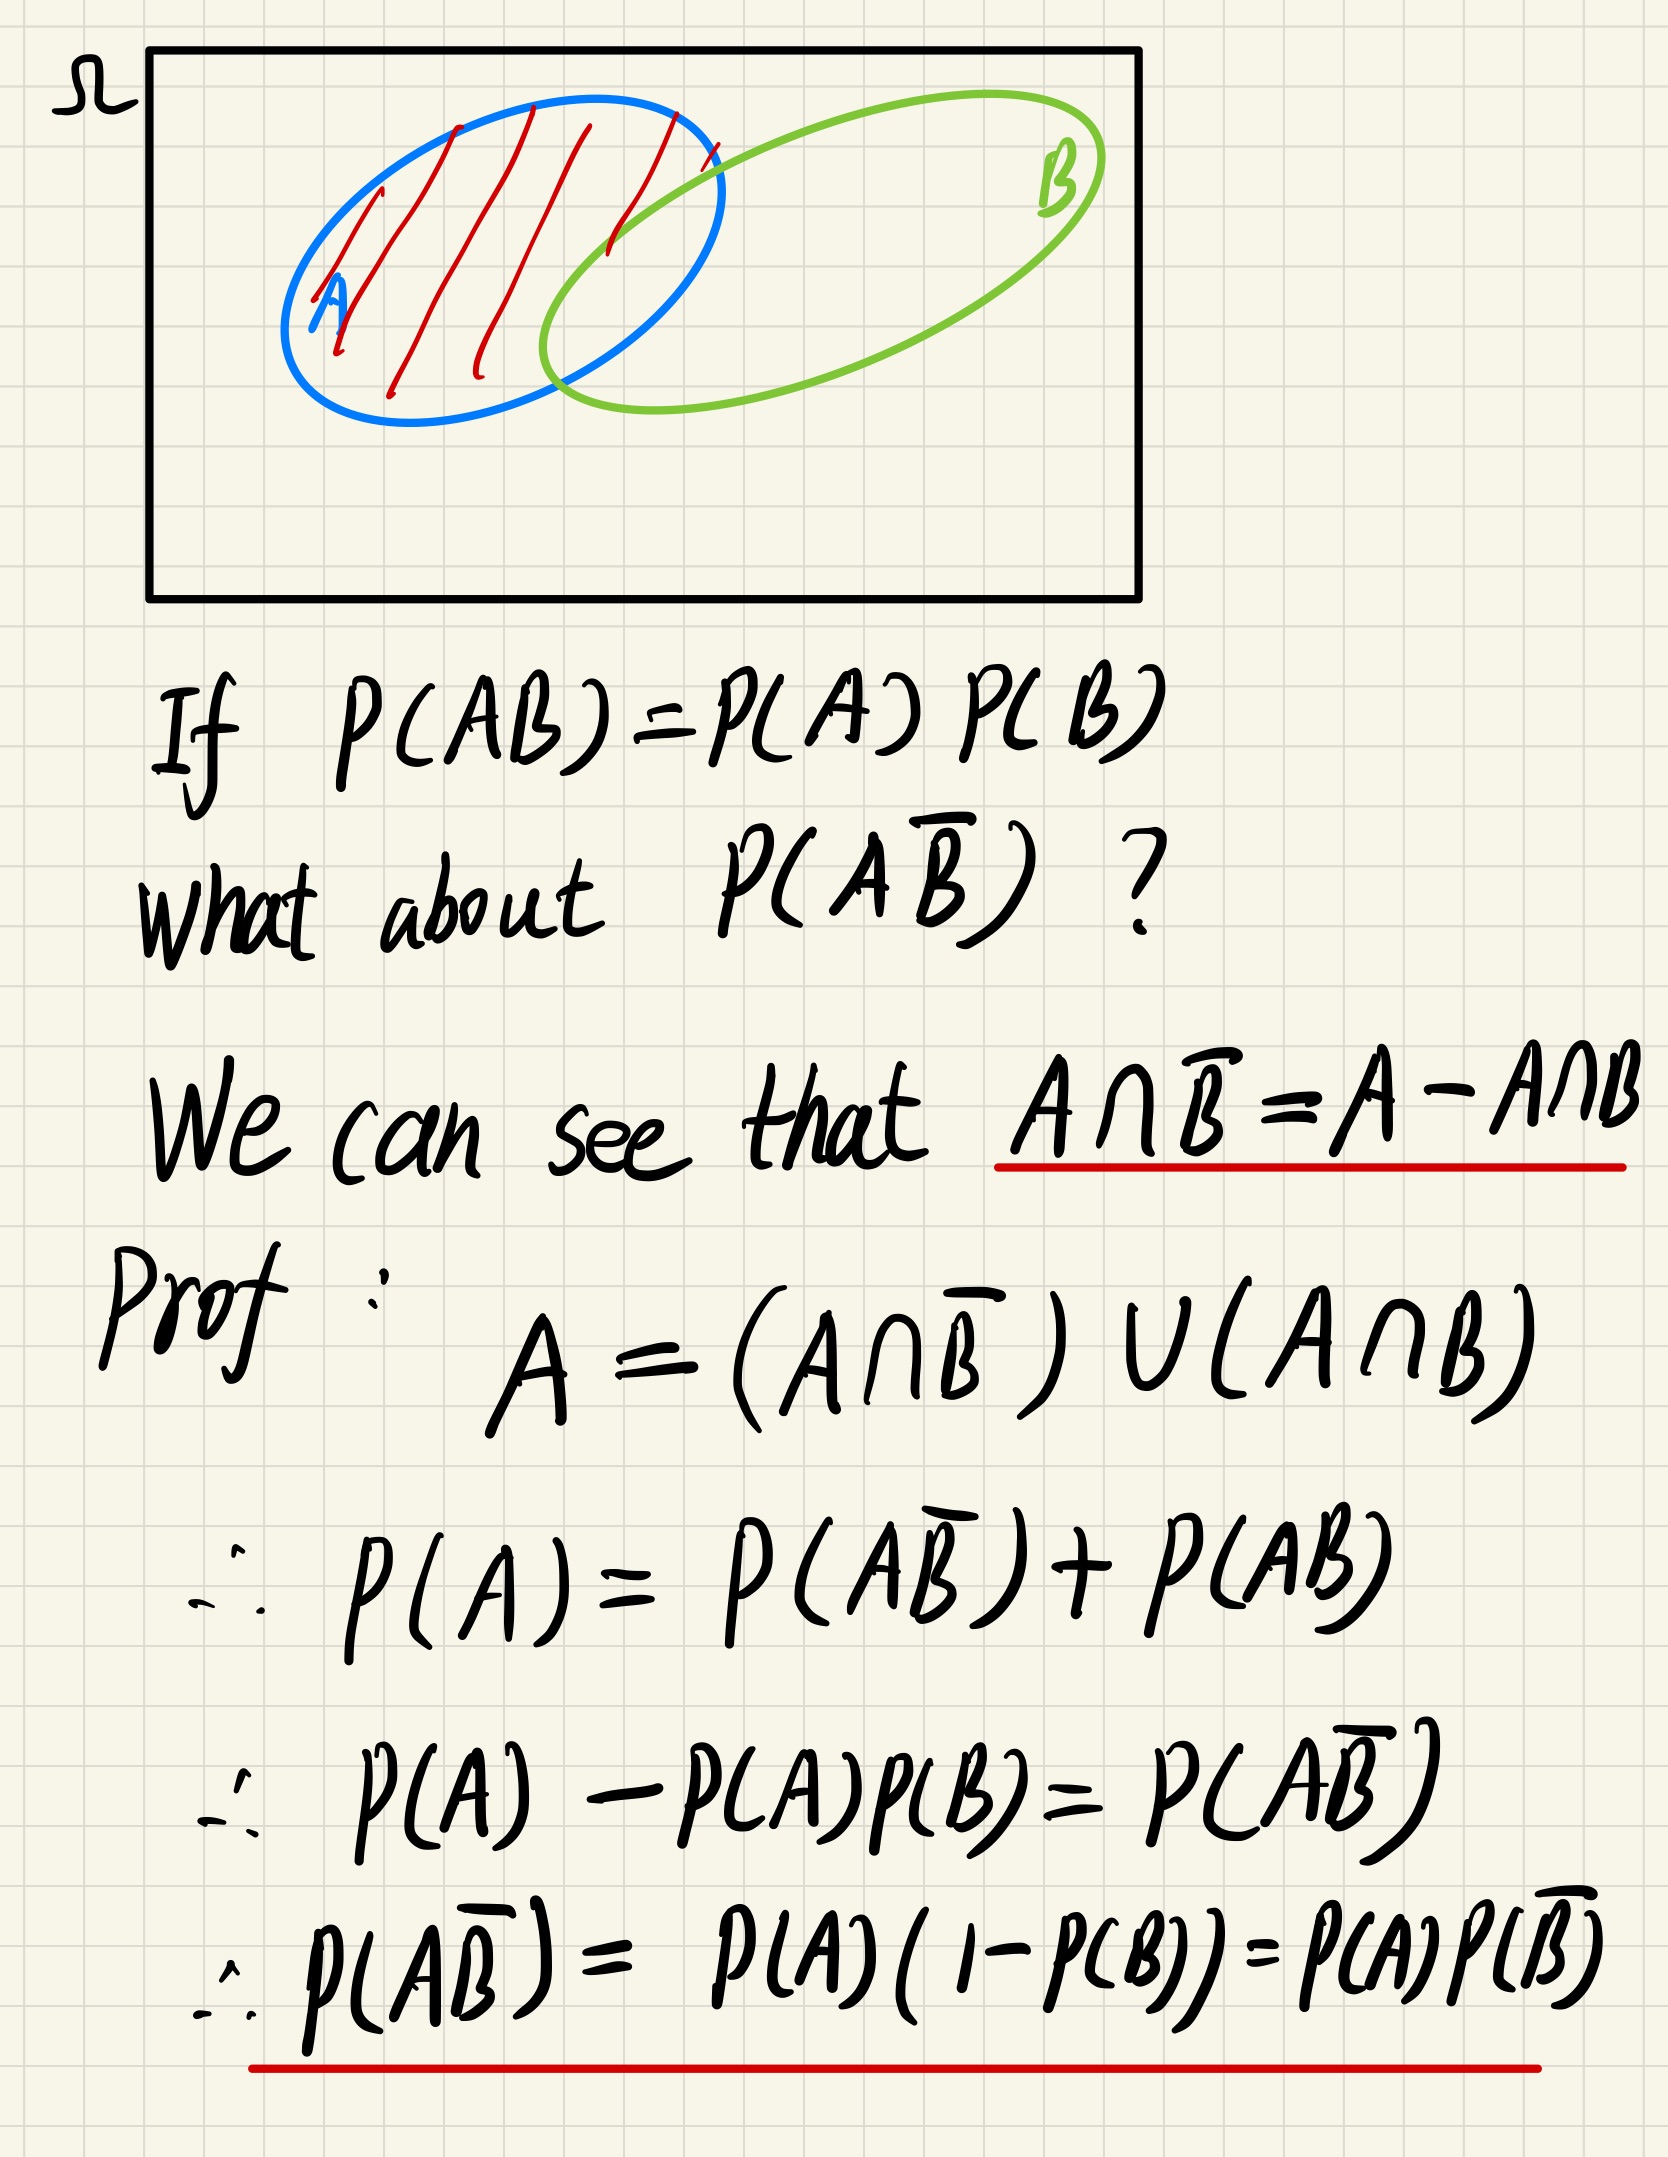 Ω
A
B
If P(AB)=P(A)P(B)
what about P(AB̅) ?
We can see that A∩B̅=A-A∩B
Prof :
A=(A∩B̅)∪(A∩B)
∴ P(A)=P(AB̅)+P(AB)
∴ P(A)-P(A)P(B)=P(AB̅)
∴ P(AB̅)=P(A)(1-P(B))=P(A)P(B̅)